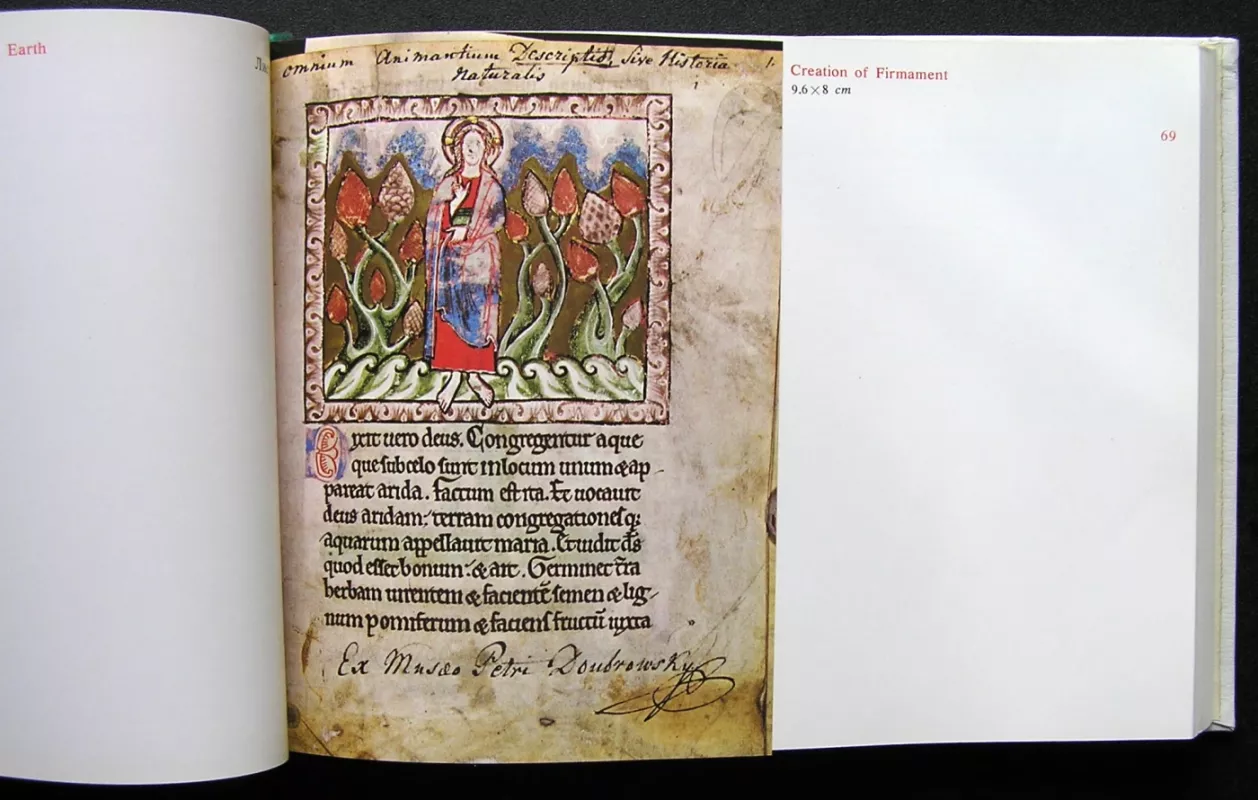 Earth
omnium Animantium Descriptio, sive Historia 1.
Naturalis
i
Dixit uero deus. Congregentur aque
que sub celo sunt in locum unum & ap
pareat arida. Factum est ita. Et uocauit
deus aridam: terram congregationesq;
aquarum appellauit maria. Et uidit d̅s
quod esset bonum: & ait. Germinet t̅ra
herbam uirentem & faciente̅ semen & lig-
num pomiferum & faciens fructu̅ iuxta
Ex Musæo Petri Doubrowsky
Creation of Firmament
9.6×8 cm
69